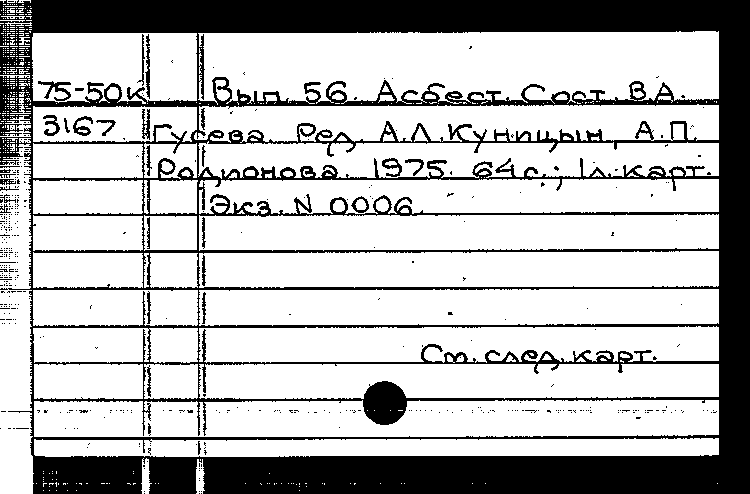 75-50к Вып. 56. Асбест. Сост. В.А.
3167 Гусева. Ред. А.Л.Куницын, А.П.
Родионова. 1975. 64с.; 1л.карт.
Экз. N 0006.
См. след. карт.